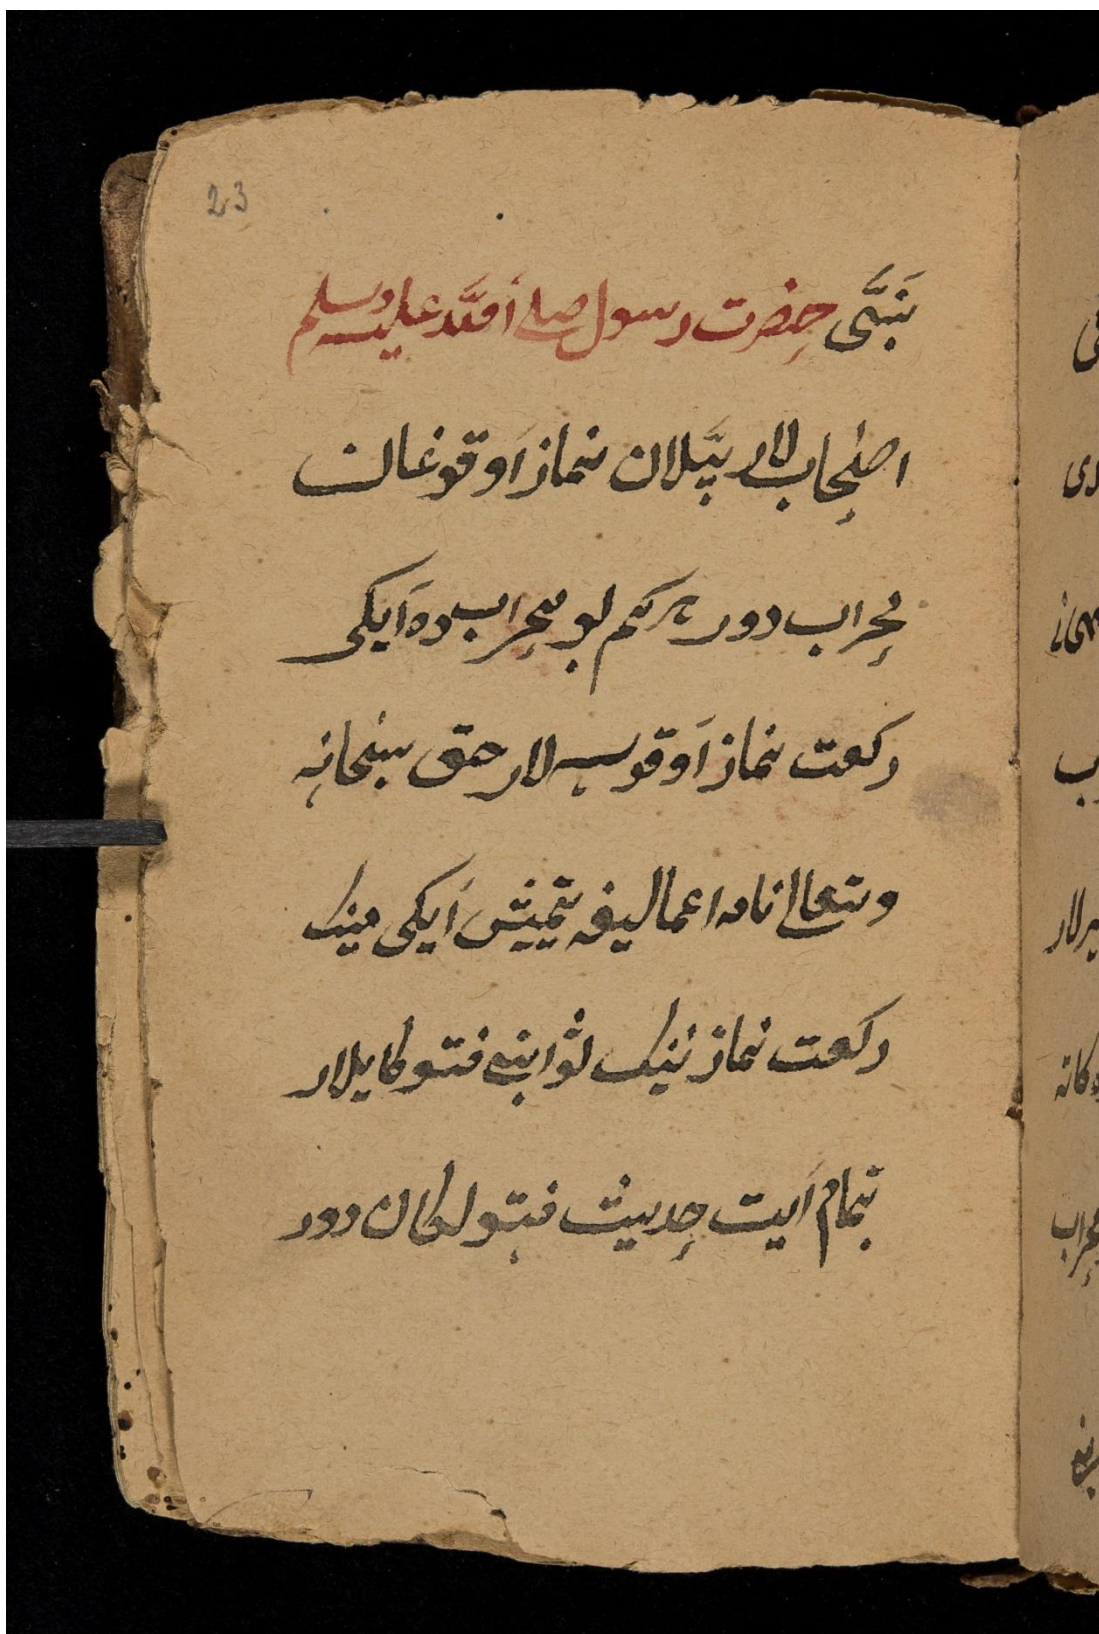 23
نبی حضرت رسول صلے الله علیه وسلم
اصحاب لار بیلان نماز اوقوغان
محراب دور هر کم بو محراب ده ایکی
رکعت نماز اوقوسه لار حق سبحانه
وتعالی نامه اعمالیغه یتمیش ایکی مینک
رکعت نماز نینک ثوابنی فتوکایلار
تمام آیت حدیث فتولکان دور